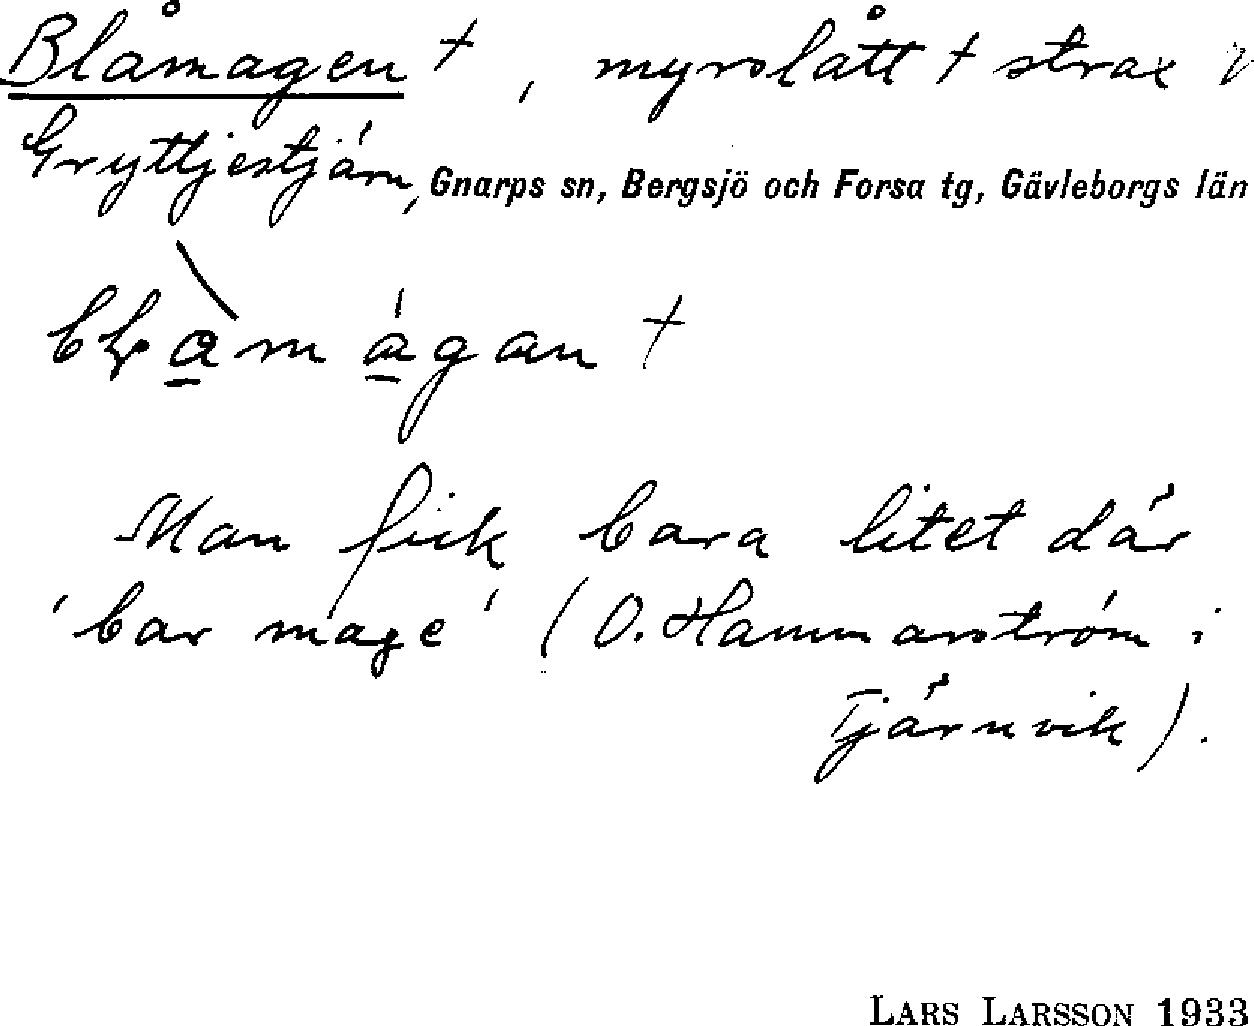 Blåmagen +, myrslått + strax v
Gryttjestjärn, Gnarps sn, Bergsjö och Forsa tg, Gävleborgs län
+
Man fick bara litet där
'bar mage' (O. Hammarström i
Tjärnvik).
LARS LARSSON 1933